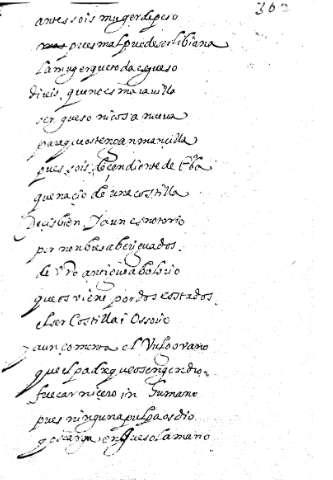 362
antes sois muger de peso
pues mal puede ser libiana
la muger que toda es gueso
direis, que no es marauilla
ser gueso ni cosa nueua
para que os tengan mancilla
pues sois decendiente de Eba
que nacio de una costilla
Decis bien, y aun es notorio
por nonbres aberiguados
de vro antiguo abolorio
que os viene por dos costados
el ser Costilla i Ossorio
y aun comenta el Vulgo vano
que el padre que os engendro
fue carnicero in humano
pues ninguna pulpa os dio